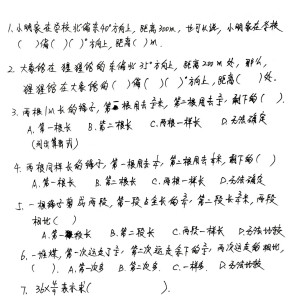 1.小明家在学校北偏东40°方向上,距离300m,也可以说,小明家在学校
( )偏( )( )°方向上,距离( )m.
2.大象馆在猩猩馆的东偏北35°方向上,距离200m处,那么,
猩猩馆在大象馆的( )偏( )( )°方向上,距离( )处.
3.两根1m长的绳子,第一根用去 米,第二根用去 ,剩下的( )
A.第一根长 B.第二根长 C.两根一样长 D.无法确定
4.两根同样长的绳子,第一根用去 ,第二根用去 米,剩下的( )
A.第一根长 B.第二根长 C.两根一样长 D.无法确定
5.一根绳子剪成两段,第一段占全长的 ,第二段长 米,两段
相比( )
A.第一段长 B.第二段长 C.两段一样长 D.无法比较
6.一堆煤,第一次运走了 ,第二次运走余下的 ,两次运走的相比,
( ). A.第一次多 B.第二次多 C.一样多 D.无法比较
7. 36× 表示求( )